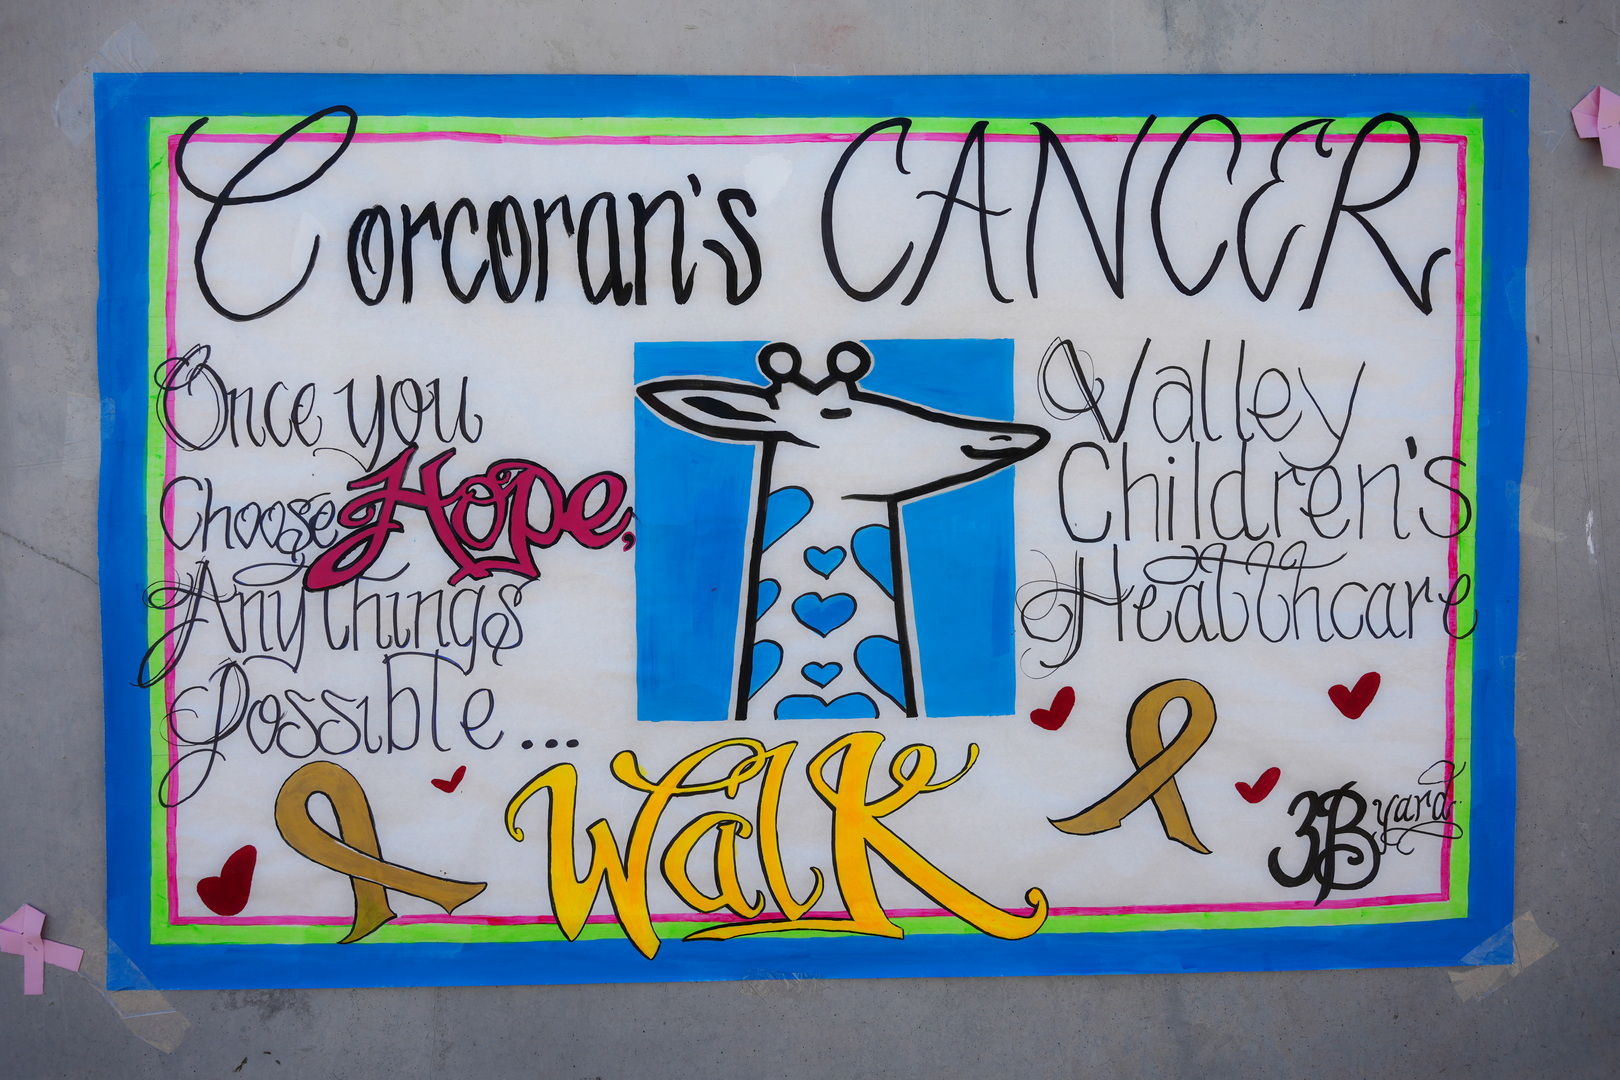 Corcoran's CANCER
Once you
Choose Hope,
Anythings
Possible...
Valley
Children's
Healthcare
Walk
3B yard